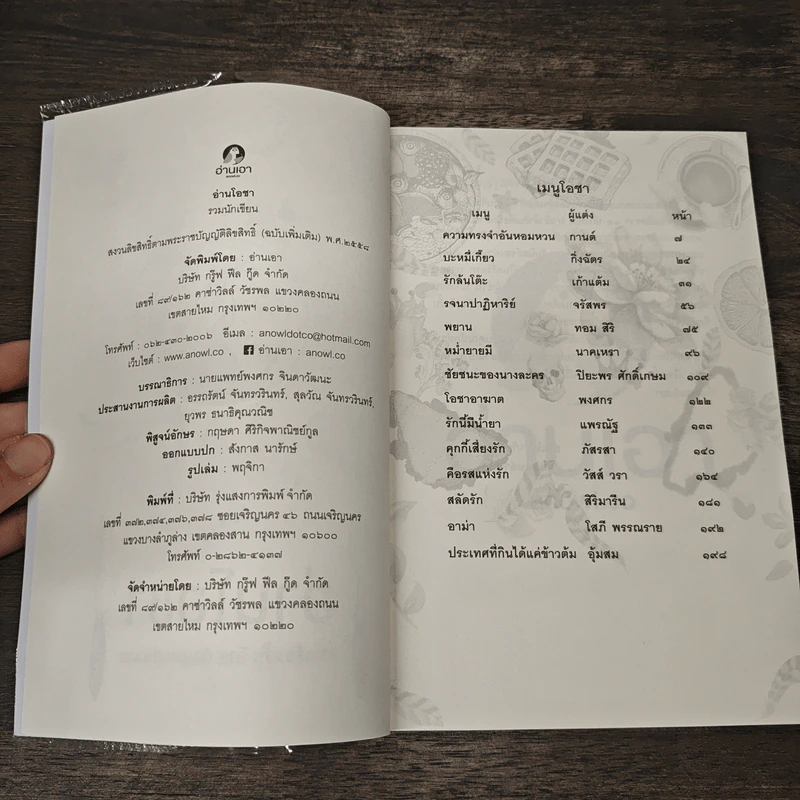 อ่านเอา
อ่านโอชา
รวมนักเขียน
สงวนลิขสิทธิ์ตามพระราชบัญญัติลิขสิทธิ์ (ฉบับเพิ่มเติม) พ.ศ.๒๕๕๘
จัดพิมพ์โดย : อ่านเอา
บริษัท กรู๊ฟ ฟีล กู๊ด จำกัด
เลขที่ ๘๙/๑๖๒ คาซ่าวิลล์ วัชรพล แขวงคลองถนน
เขตสายไหม กรุงเทพฯ ๑๐๒๒๐
โทรศัพท์ : ๐๖๒-๔๓๐-๒๐๐๖ อีเมล : anowldotco@hotmail.com
เว็บไซต์ : www.anowl.co , อ่านเอา : anowl.co
บรรณาธิการ : นายแพทย์พงศกร จินดาวัฒนะ
ประสานงานการผลิต : อรรถรัตน์ จันทรวรินทร์, สุลวัณ จันทรวรินทร์,
ยุวพร ธนาธิคุณวณิช
พิสูจน์อักษร : กฤษดา ศิริกิจพาณิชย์กูล
ออกแบบปก : สังกาส นารักษ์
รูปเล่ม : พฤจิกา
พิมพ์ที่ : บริษัท รุ่งแสงการพิมพ์ จำกัด
เลขที่ ๓๗๒,๓๗๔,๓๗๖,๓๗๘ ซอยเจริญนคร ๔๖ ถนนเจริญนคร
แขวงบางลำภูล่าง เขตคลองสาน กรุงเทพฯ ๑๐๖๐๐
โทรศัพท์ ๐-๒๘๖๒-๔๑๓๗
จัดจำหน่ายโดย : บริษัท กรู๊ฟ ฟีล กู๊ด จำกัด
เลขที่ ๘๙/๑๖๒ คาซ่าวิลล์ วัชรพล แขวงคลองถนน
เขตสายไหม กรุงเทพฯ ๑๐๒๒๐
เมนูโอชา
เมนู ผู้แต่ง หน้า
ความทรงจำอันหอมหวน กานต์ ๗
บะหมี่เกี้ยว กิ่งฉัตร ๒๔
รักล้นโต๊ะ เก้าแต้ม ๓๑
รจนาปาฏิหาริย์ จรัสพร ๕๖
พยาน ทอม สิริ ๗๕
หม่ำยายมี นาคเหรา ๙๖
ชัยชนะของนางละคร ปิยะพร ศักดิ์เกษม ๑๐๙
โอชาอาฆาต พงศกร ๑๒๒
รักนี้มีน้ำยา แพรณัฐ ๑๓๓
คุกกี้เสี่ยงรัก ภัสรสา ๑๔๐
คือรสแห่งรัก วัสส์ วรา ๑๖๔
สลัดรัก สิริมารีน ๑๘๑
อาม่า โสภี พรรณราย ๑๙๒
ประเทศที่กินได้แค่ข้าวต้ม อุ้มสม ๑๙๘